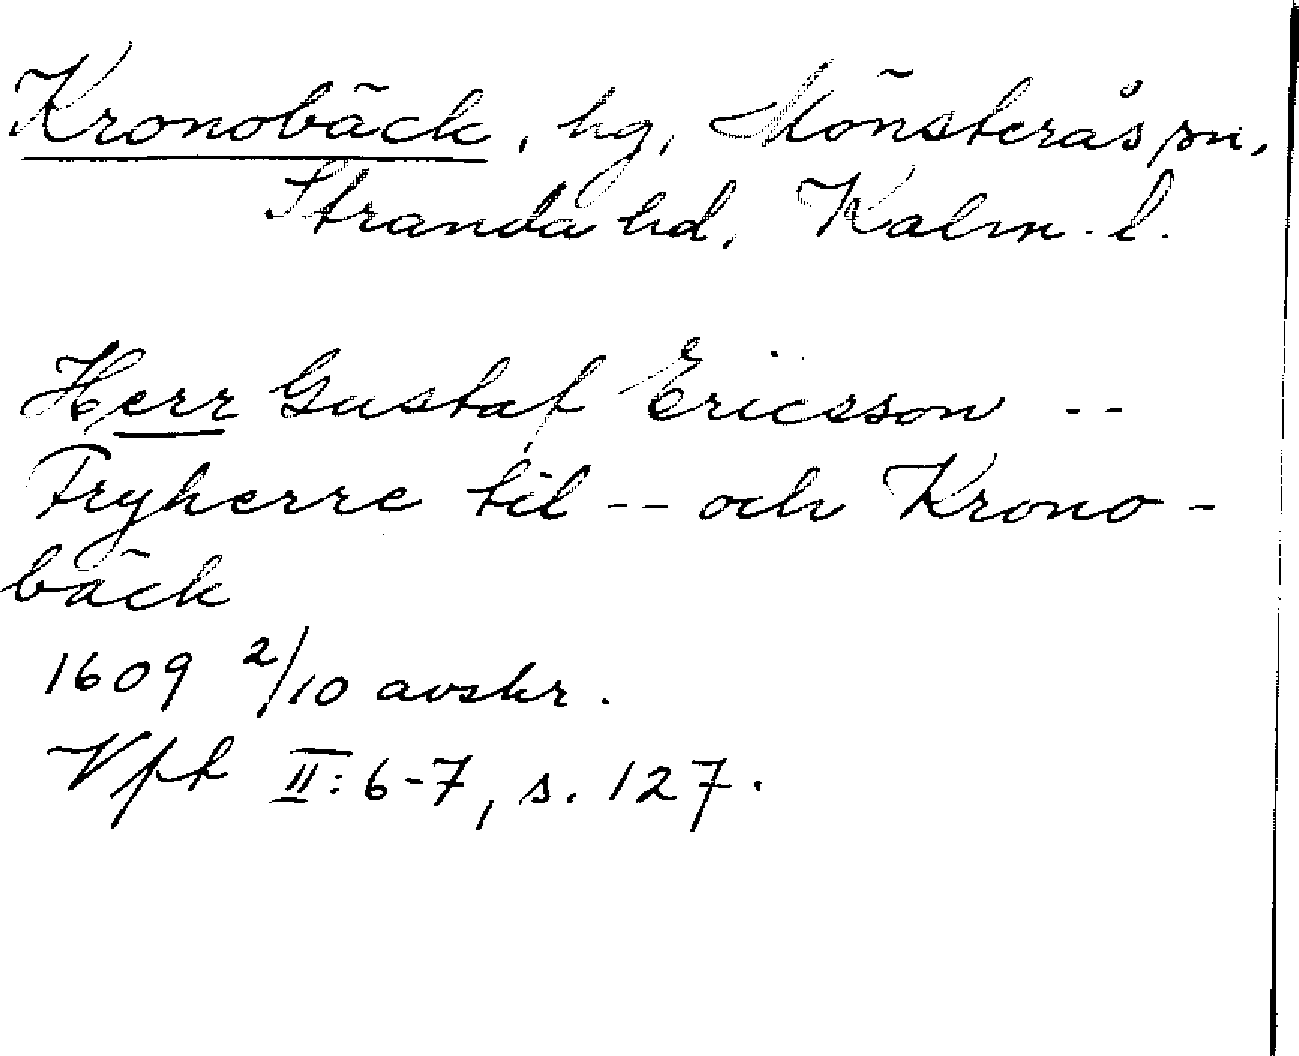 Kronobäck, hg, Mönsterås sn,
Stranda hd, Kalm. l.
Herr Gustaf Ericsson --
Fryherre til -- och Krono-
bäck
1609 2/10 avskr.
Vpk II: 6-7, s. 127.